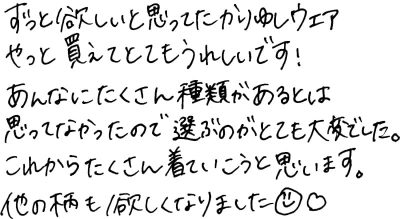 ずっと欲しいと思ってたかりゆしウェア
やっと買えてとてもうれしいです!
あんなにたくさん種類があるとは
思ってなかったので選ぶのがとても大変でした。
これからたくさん着ていこうと思います。
他の柄も欲しくなりました☺○